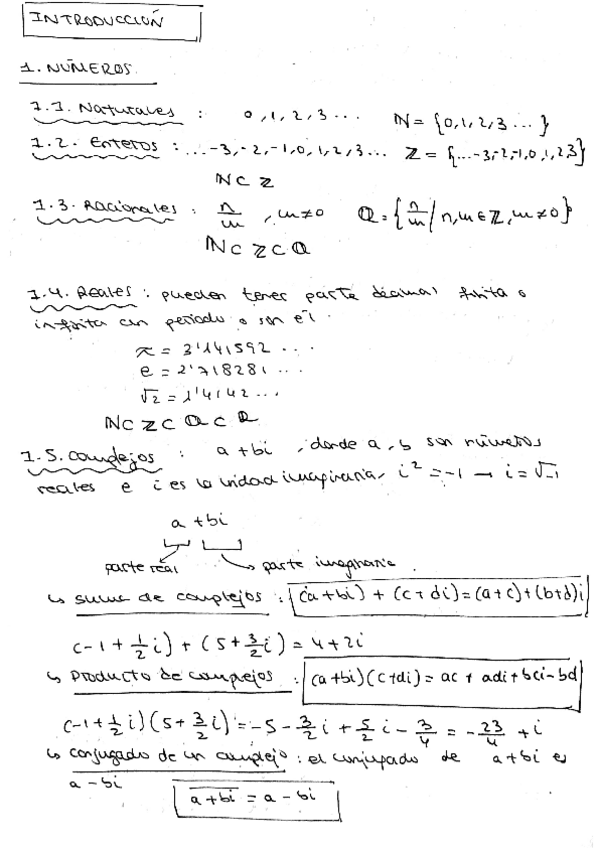 INTRODUCCIÓN
1. NÚMEROS
1.1. Naturales : 0, 1, 2, 3 ... ℕ = {0, 1, 2, 3 ... }
1.2. Enteros : ... -3, -2, -1, 0, 1, 2, 3 ... ℤ = {... -3, -2, -1, 0, 1, 2, 3}
ℕ ⊂ ℤ
1.3. Racionales : n/m , m≠0 ℚ = {n/m / n, m ∈ ℤ, m ≠ 0}
ℕ ⊂ ℤ ⊂ ℚ
1.4. Reales : pueden tener parte decimal finita o
infinita con periodo o sin él.
π = 3'141592 ...
e = 2'718281 ...
√2 = 1'4142 ...
ℕ ⊂ ℤ ⊂ ℚ ⊂ ℝ
1.5. Complejos : a + bi , donde a, b son números
reales e i es la unidad imaginaria, i² = -1 → i = √-1
a + bi
parte real parte imaginaria.
↳ suma de complejos : (a+bi) + (c+di) = (a+c) + (b+d)i
(-1 + 1/2 i) + (5 + 3/2 i) = 4 + 2i
↳ Producto de complejos : (a+bi)(c+di) = ac + adi + bci - bd
(-1 + 1/2 i)(5 + 3/2 i) = -5 - 3/2 i + 5/2 i - 3/4 = -23/4 + i
↳ conjugado de un complejo : el conjugado de a + bi es
a - bi a̅+̅b̅i̅ = a - bi